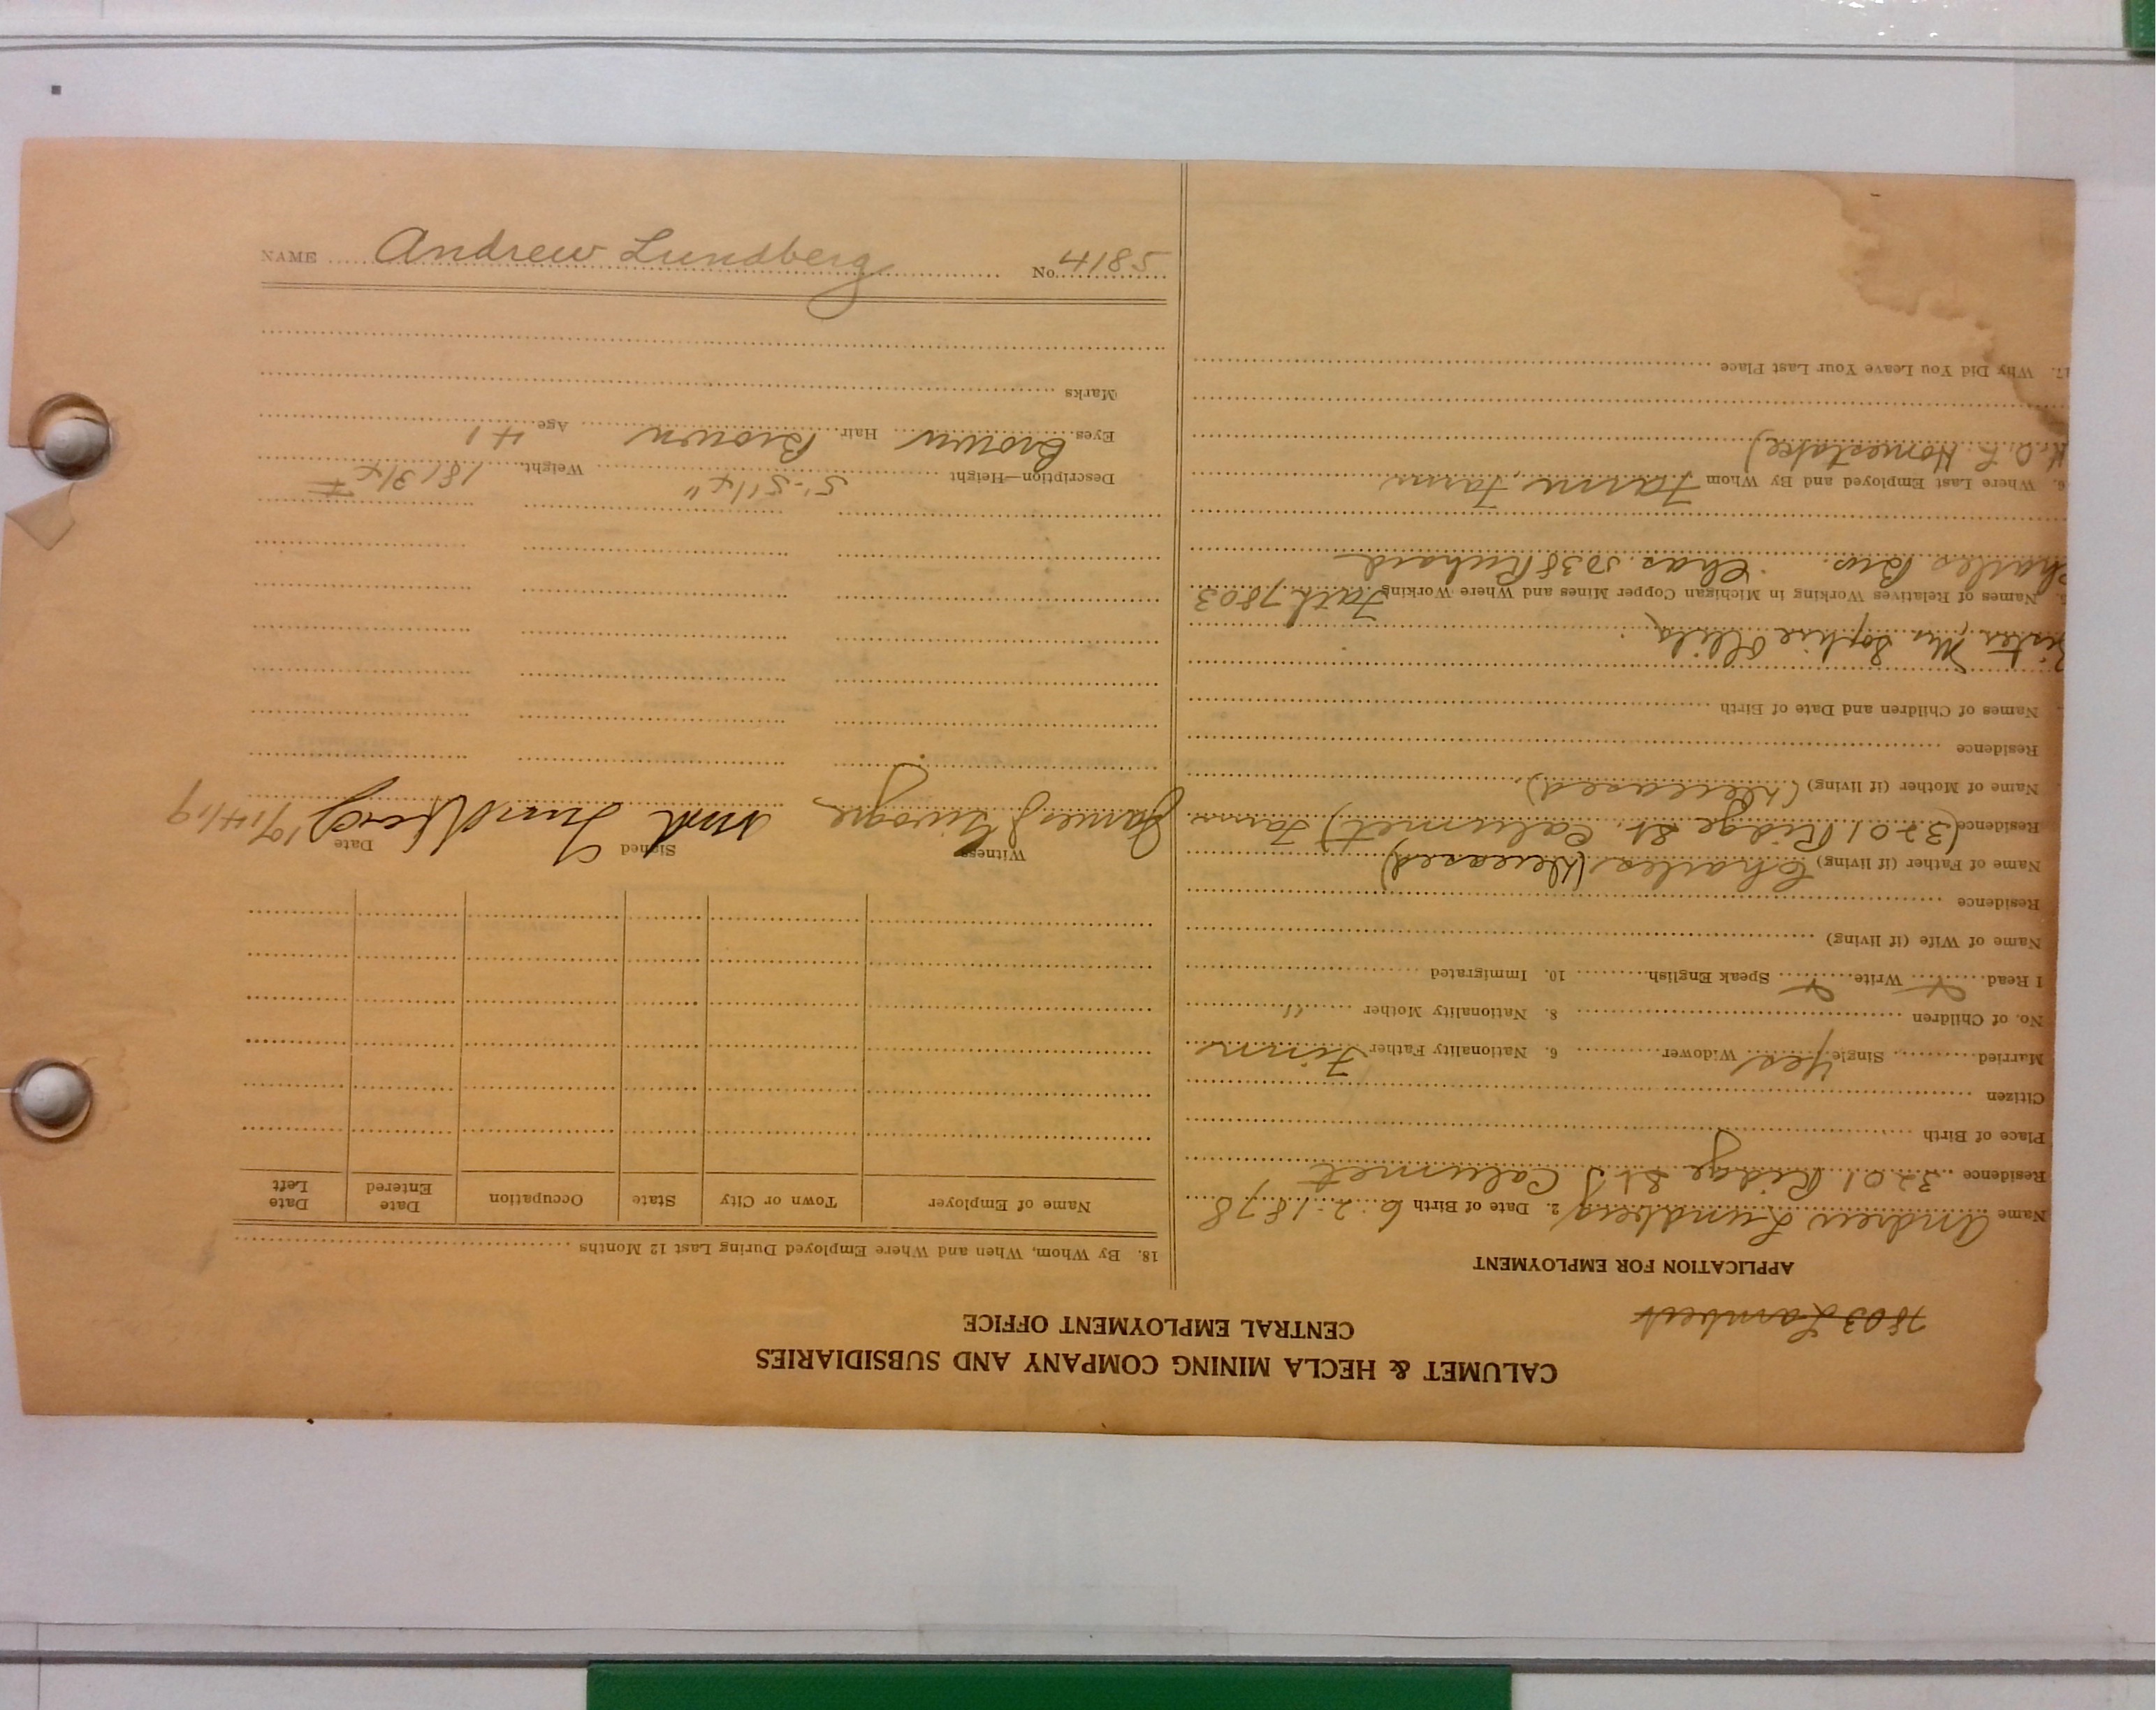 CALUMET & HECLA MINING COMPANY AND SUBSIDIARIES
CENTRAL EMPLOYMENT OFFICE
7803 Lambert
APPLICATION FOR EMPLOYMENT
Name Andrew Lundberg 2. Date of Birth 6-2-1878
Residence 3201 Ridge St Calumet
Place of Birth
Citizen
Married Single Yes Widower 6. Nationality Father Finn
No. of Children 8. Nationality Mother "
I Read Write Speak English 10. Immigrated
Name of Wife (if living)
Residence
Name of Father (if living) Charles (deceased)
Residence (3201 Ridge St. Calumet)
Name of Mother (if living) (deceased)
Residence
Names of Children and Date of Birth
Sister, Mrs Sophie Ollila
Names of Relatives Working in Michigan Copper Mines and Where Working 7803
Charles Bro. Chas. 5038
6. Where Last Employed and By Whom
Homestake)
17. Why Did You Leave Your Last Place
18. By Whom, When and Where Employed During Last 12 Months
Name of Employer Town or City State Occupation Date Entered Date Left
Witness Signed Date
James Lundberg 10/14/19
Description—Height 5'-5 1/4" Weight 181 3/4 #
Eyes Brown Hair Brown Age 41
Marks
NAME Andrew Lundberg No. 4185